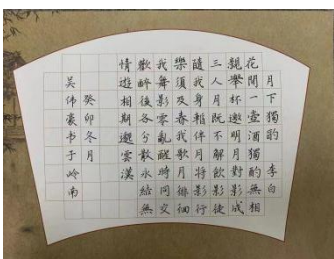 月下獨酌 李白
花間一壺酒獨酌無相
親舉杯邀明月對影成
三人月既不解飲影徒
隨我身暫伴月將影行
樂須及春我歌月徘徊
我舞影零亂醒時同交
歡醉後各分散永結無
情遊相期邈雲漢
癸卯冬月
吴伟豪书于岭南